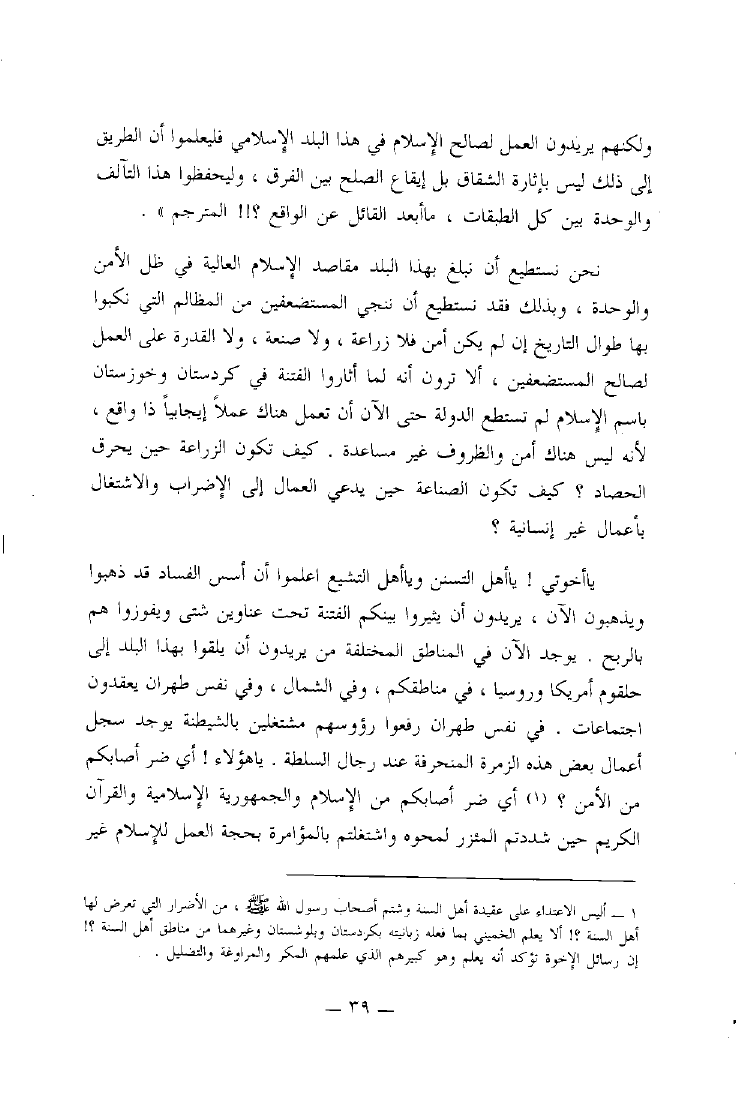 ولكنهم يريدون العمل لصالح الإسلام في هذا البلد الإسلامي فليعلموا أن الطريق
إلى ذلك ليس بإثارة الشقاق بل إيقاع الصلح بين الفرق ، وليحفظوا هذا التآلف
والوحدة بين كل الطبقات ، ماأبعد القائل عن الواقع ؟!! المترجم » .
نحن نستطيع أن نبلغ بهذا البلد مقاصد الإسلام العالية في ظل الأمن
والوحدة ، وبذلك فقد نستطيع أن ننجي المستضعفين من المظالم التي نكبوا
بها طوال التاريخ إن لم يكن أمن فلا زراعة ، ولا صنعة ، ولا القدرة على العمل
لصالح المستضعفين ، ألا ترون أنه لما أثاروا الفتنة في كردستان وخوزستان
باسم الإسلام لم تستطع الدولة حتى الآن أن تعمل هناك عملاً إيجابياً ذا واقع ،
لأنه ليس هناك أمن والظروف غير مساعدة . كيف تكون الزراعة حين يحرق
الحصاد ؟ كيف تكون الصناعة حين يدعي العمال إلى الإضراب والاشتغال
بأعمال غير إنسانية ؟
ياأخوتي ! ياأهل التسنن وياأهل التشيع اعلموا أن أسس الفساد قد ذهبوا
ويذهبون الآن ، يريدون أن يثيروا بينكم الفتنة تحت عناوين شتى ويفوزوا هم
بالربح . يوجد الآن في المناطق المختلفة من يريدون أن يلقوا بهذا البلد إلى
حلقوم أمريكا وروسيا ، في مناطقكم ، وفي الشمال ، وفي نفس طهران يعقدون
اجتماعات . في نفس طهران رفعوا رؤوسهم مشتغلين بالشيطنة يوجد سجل
أعمال بعض هذه الزمرة المنحرفة عند رجال السلطة . ياهؤلاء ! أي ضر أصابكم
من الأمن ؟ (١) أي ضر أصابكم من الإسلام والجمهورية الإسلامية والقرآن
الكريم حين شددتم المئزر لمحوه واشتغلتم بالمؤامرة بحجة العمل للإسلام غير
١ ــ أليس الاعتداء على عقيدة أهل السنة وشتم أصحاب رسول الله ﷺ ، من الأضرار التي تعرض لها
أهل السنة ؟! ألا يعلم الخميني بما فعله زبانيته بكردستان وبلوشستان وغيرهما من مناطق أهل السنة ؟!
إن رسائل الإخوة تؤكد أنه يعلم وهو كبيرهم الذي علمهم المكر والمراوغة والتضليل .
ــ ٣٩ ــ